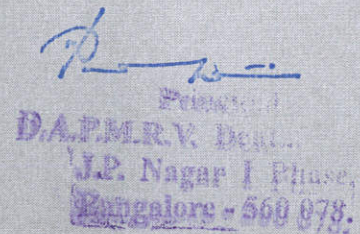 Principal
D.A.P.M.R.V. Dent...
J.P. Nagar I Phase,
Bangalore - 560 078.